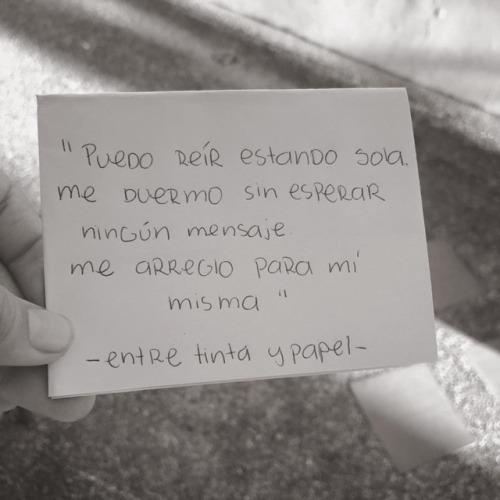 "Puedo reír estando sola.
me duermo sin esperar
ningún mensaje.
me arreglo para mí
misma"
-entre tinta y papel-